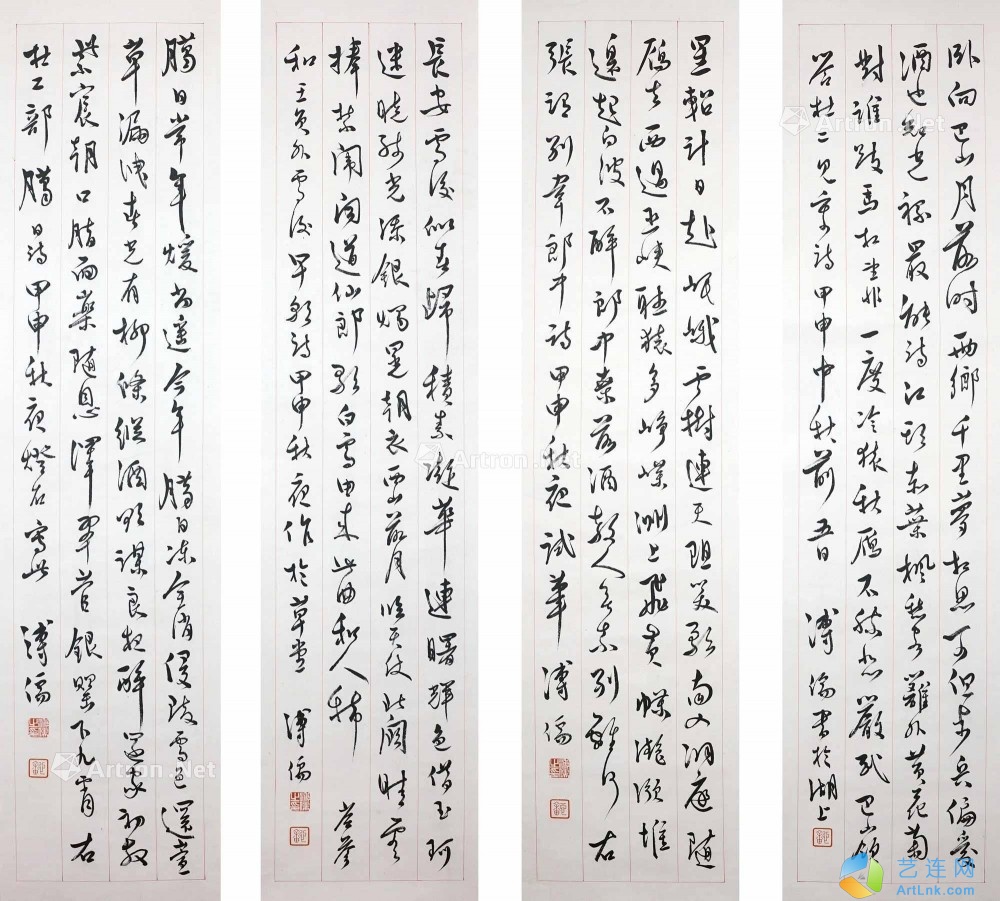 卧向巴山月落時兩鄉千里夢相思可但步兵偏愛
酒也知光祿最能詩江頭赤葉楓愁客籬外黃花菊
對誰跂馬相望非一度冷猿秋雁不勝悲嚴武巴山嶺
答杜二見寄詩甲申中秋前五日 溥儒書於湖上
星軺計日赴岷峨雲樹連天阻笑歌南入洞庭隨
雁去西過巫峽聽猿多崢嶸洲上飛黃蝶灩澦堆
邊起白波不醉郎中桑落酒教人無奈別離何 右
張謂別韋郎中詩 甲申秋夜試筆 溥儒
長安雪後似春歸積素凝華連曙輝色借玉珂
迷曉騎光添銀燭晃朝衣西山落月臨天仗北闕晴雲
捧禁闈聞道仙郎歌白雪由來此曲和人稀 岑參
和王員外雪後早朝詩甲申秋夜作於草堂 溥儒
臘日常年暖尚遙今年臘日凍全消侵陵雪色還萱
草漏洩春光有柳條縱酒欲謀良夜醉還家初散
紫宸朝口脂面藥隨恩澤翠管銀罌下九霄 右
杜工部 臘日詩甲申秋夜燈右寫此 溥儒
Artron.Net
艺连网
ArtLnk.com